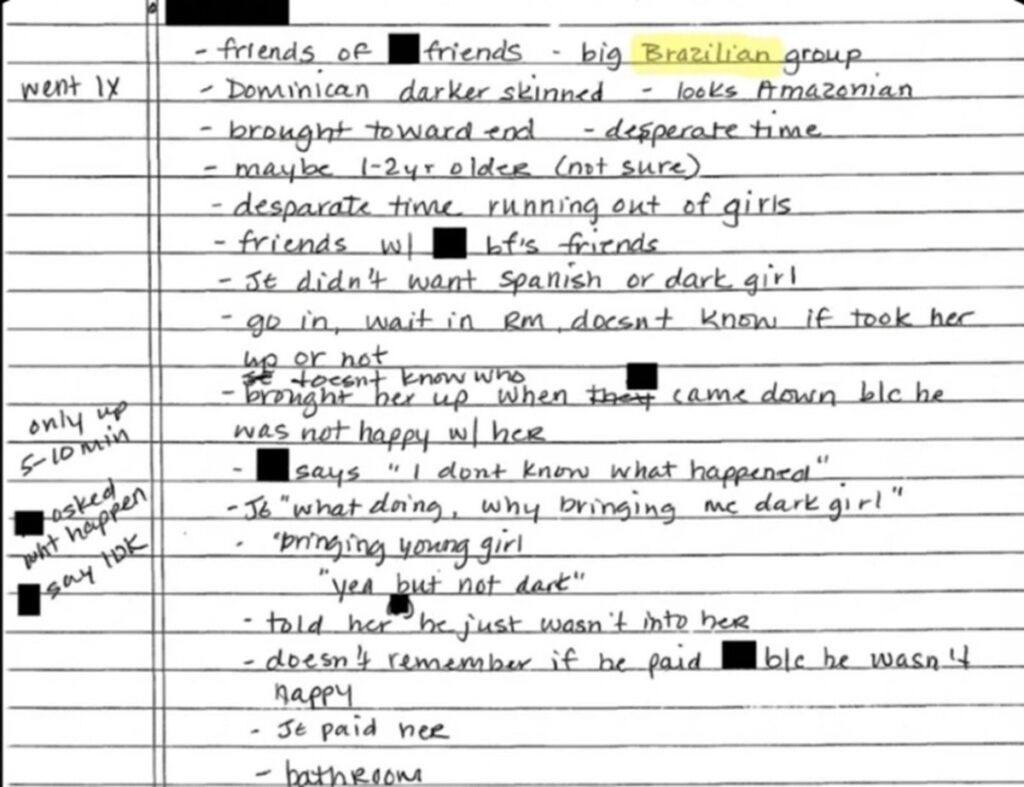 - friends of friends - big Brazilian group
went 1x
- Dominican darker skinned - looks Amazonian
- brought toward end - desperate time
- maybe 1-2yr older (not sure)
- desparate time running out of girls
- friends w/ bf's friends
- JE didn't want Spanish or dark girl
- go in, wait in RM, doesnt know if took her
up or not
JE doesnt know who
- brought her up when they came down b/c he
was not happy w/ her
only up
5-10 min
- says "I dont know what happened"
asked
wht happen
say IDK
- JE "what doing, why bringing me dark girl"
- "bringing young girl
"yea but not dark"
- told her he just wasn't into her
- doesn't remember if he paid b/c he wasn't
happy
- JE paid her
- bathroom